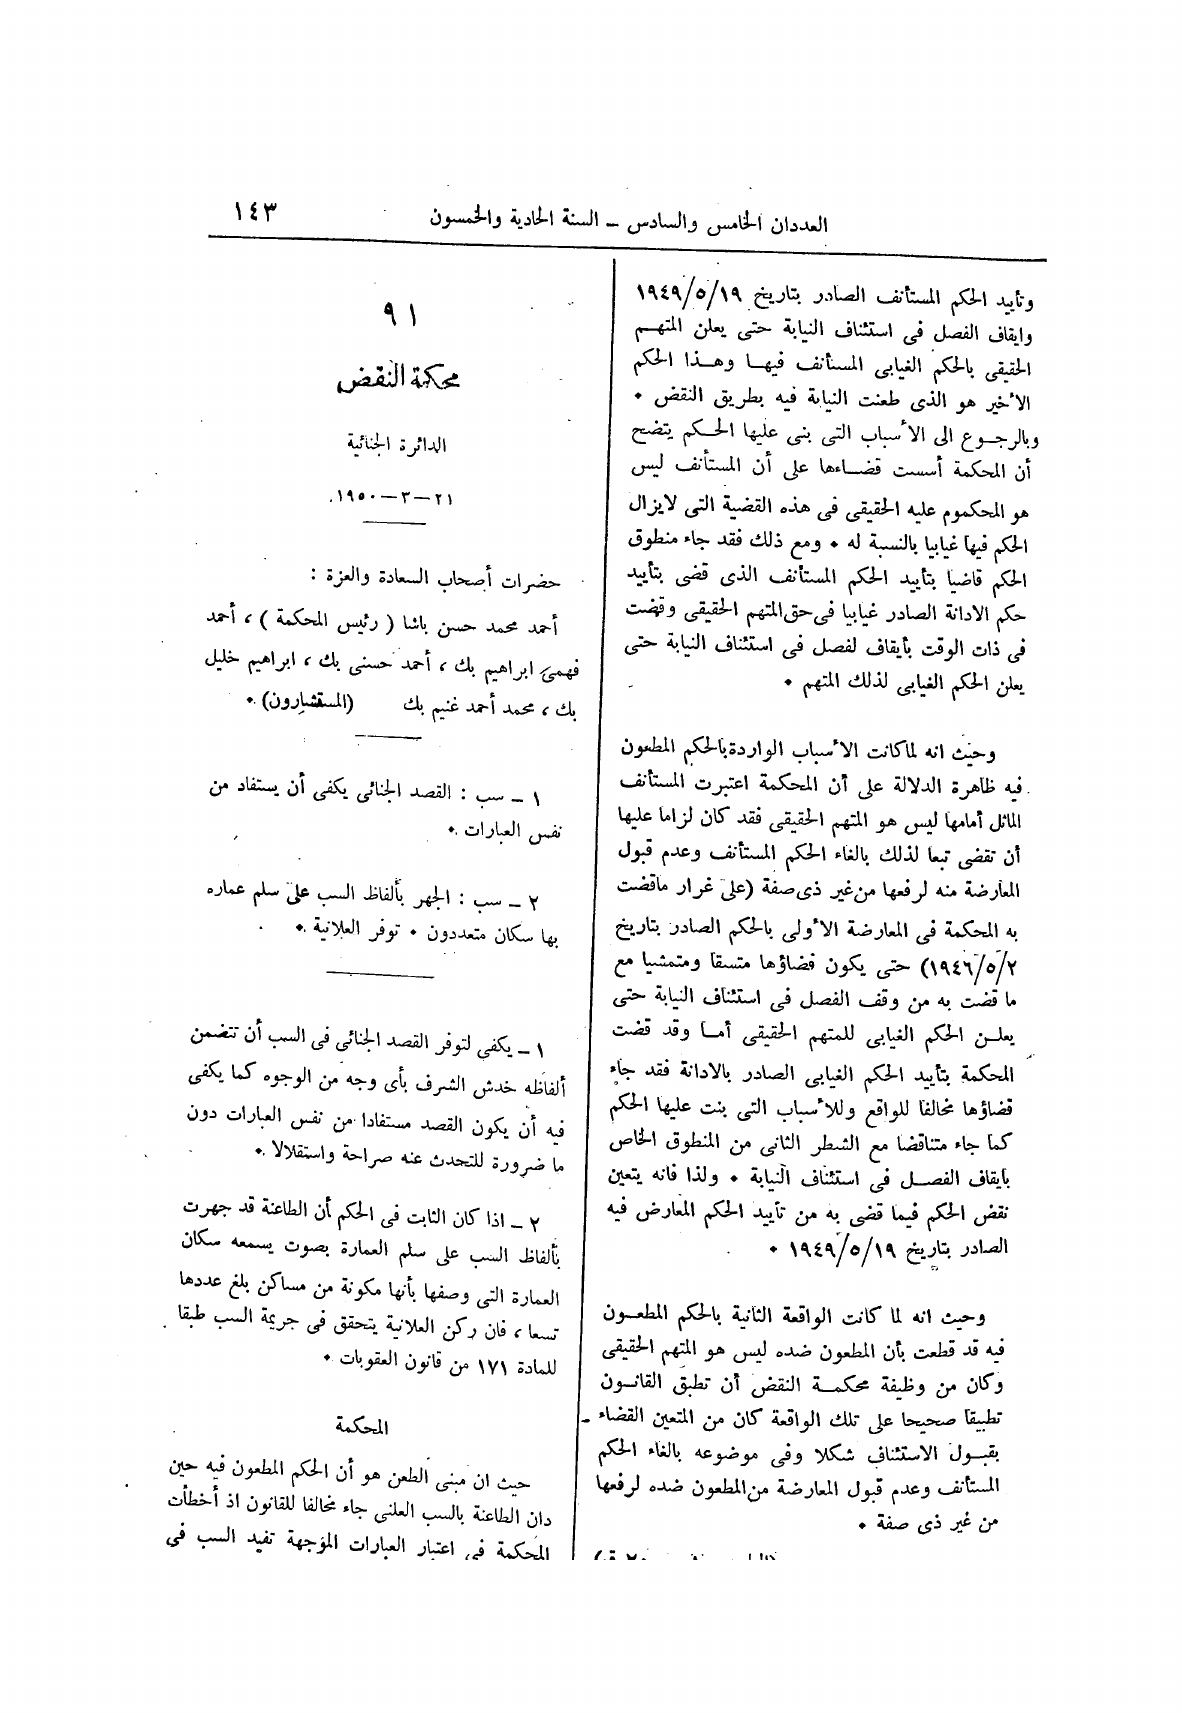 العددان الخامس والسادس – السنة الحادية والخمسون
١٤٣
وتأييد الحكم المستأنف الصادر بتاريخ ١٩٤٩/٥/١٩
وايقاف الفصل فى استئناف النيابة حتى يعلن المتهم
الحقيقى بالحكم الغيابى المستأنف فيها وهذا الحكم
الأخير هو الذى طعنت النيابة فيه بطريق النقض •
وبالرجوع الى الأسباب التى بنى عليها الحكم يتضح
أن المحكمة أسست قضاءها على أن المستأنف ليس
هو المحكموم عليه الحقيقى فى هذه القضية التى لايزال
الحكم فيها غيابيا بالنسبة له • ومع ذلك فقد جاء منطوق
الحكم قاضيا بتأييد الحكم المستأنف الذى قضى بتأييد
حكم الادانة الصادر غيابيا فى حق المتهم الحقيقى وقضت
فى ذات الوقت بأيقاف لفصل فى استئناف النيابة حتى
يعلن الحكم الغيابى لذلك المتهم •
وحيث انه لماكانت الأسباب الواردة بالحكم المطعون
فيه ظاهرة الدلالة على أن المحكمة اعتبرت المستأنف
الماثل أمامها ليس هو المتهم الحقيقى فقد كان لزاما عليها
أن تقضى تبعا لذلك بالغاء الحكم المستأنف وعدم قبول
المعارضة منه لرفعها من غير ذى صفة (على غرار ماقضت
به المحكمة فى المعارضة الأولى بالحكم الصادر بتاريخ
١٩٤٦/٥/٢) حتى يكون قضاؤها متسقا ومتمشيا مع
ما قضت به من وقف الفصل فى استئناف النيابة حتى
يعلن الحكم الغيابى للمتهم الحقيقى أما وقد قضت
المحكمة بتأييد الحكم الغيابى الصادر بالادانة فقد جاء
قضاؤها مخالفا للواقع وللأسباب التى بنت عليها الحكم
كما جاء متناقضا مع الشطر الثانى من المنطوق الخاص
بأيقاف الفصل فى استئناف النيابة • ولذا فانه يتعين
نقض الحكم فيما قضى به من تأييد الحكم المعارض فيه
الصادر بتاريخ ١٩٤٩/٥/١٩ •
وحيث انه لما كانت الواقعة الثانية بالحكم المطعون
فيه قد قطعت بأن المطعون ضده ليس هو المتهم الحقيقى
وكان من وظيفة محكمة النقض أن تطبق القانون
تطبيقا صحيحا على تلك الواقعة كان من المتعين القضاء
بقبول الاستئناف شكلا وفى موضوعه بالغاء الحكم
المستأنف وعدم قبول المعارضة من المطعون ضده لرفعها
من غير ذى صفة •
٩١
محكمة النقض
الدائرة الجنائية
٢١–٣–١٩٥٠
حضرات أصحاب السعادة والعزة :
أحمد محمد حسن باشا ( رئيس المحكمة ) ، أحمد
فهمى ابراهيم بك ، أحمد حسنى بك ، ابراهيم خليل
بك ، محمد أحمد غنيم بك (المستشارون) •
١ – سب : القصد الجنائى يكفى أن يستفاد من
نفس العبارات •
٢ – سب : الجهر بألفاظ السب على سلم عماره
بها سكان متعددون • توفر العلانية •
١ – يكفى لتوفر القصد الجنائى فى السب أن تتضمن
ألفاظه خدش الشرف بأى وجه من الوجوه كما يكفى
فيه أن يكون القصد مستفادا من نفس العبارات دون
ما ضرورة للتحدث عنه صراحة واستقلالا •
٢ – اذا كان الثابت فى الحكم أن الطاعنة قد جهرت
بألفاظ السب على سلم العمارة بصوت يسمعه سكان
العمارة التى وصفها بأنها مكونة من مساكن بلغ عددها
تسعا ، فان ركن العلانية يتحقق فى جريمة السب طبقا
للمادة ١٧١ من قانون العقوبات •
المحكمة
حيث ان مبنى الطعن هو أن الحكم المطعون فيه حين
دان الطاعنة بالسب العلنى جاء مخالفا للقانون اذ أخطأت
المحكمة فى اعتبار العبارات الموجهة تفيد السب فى